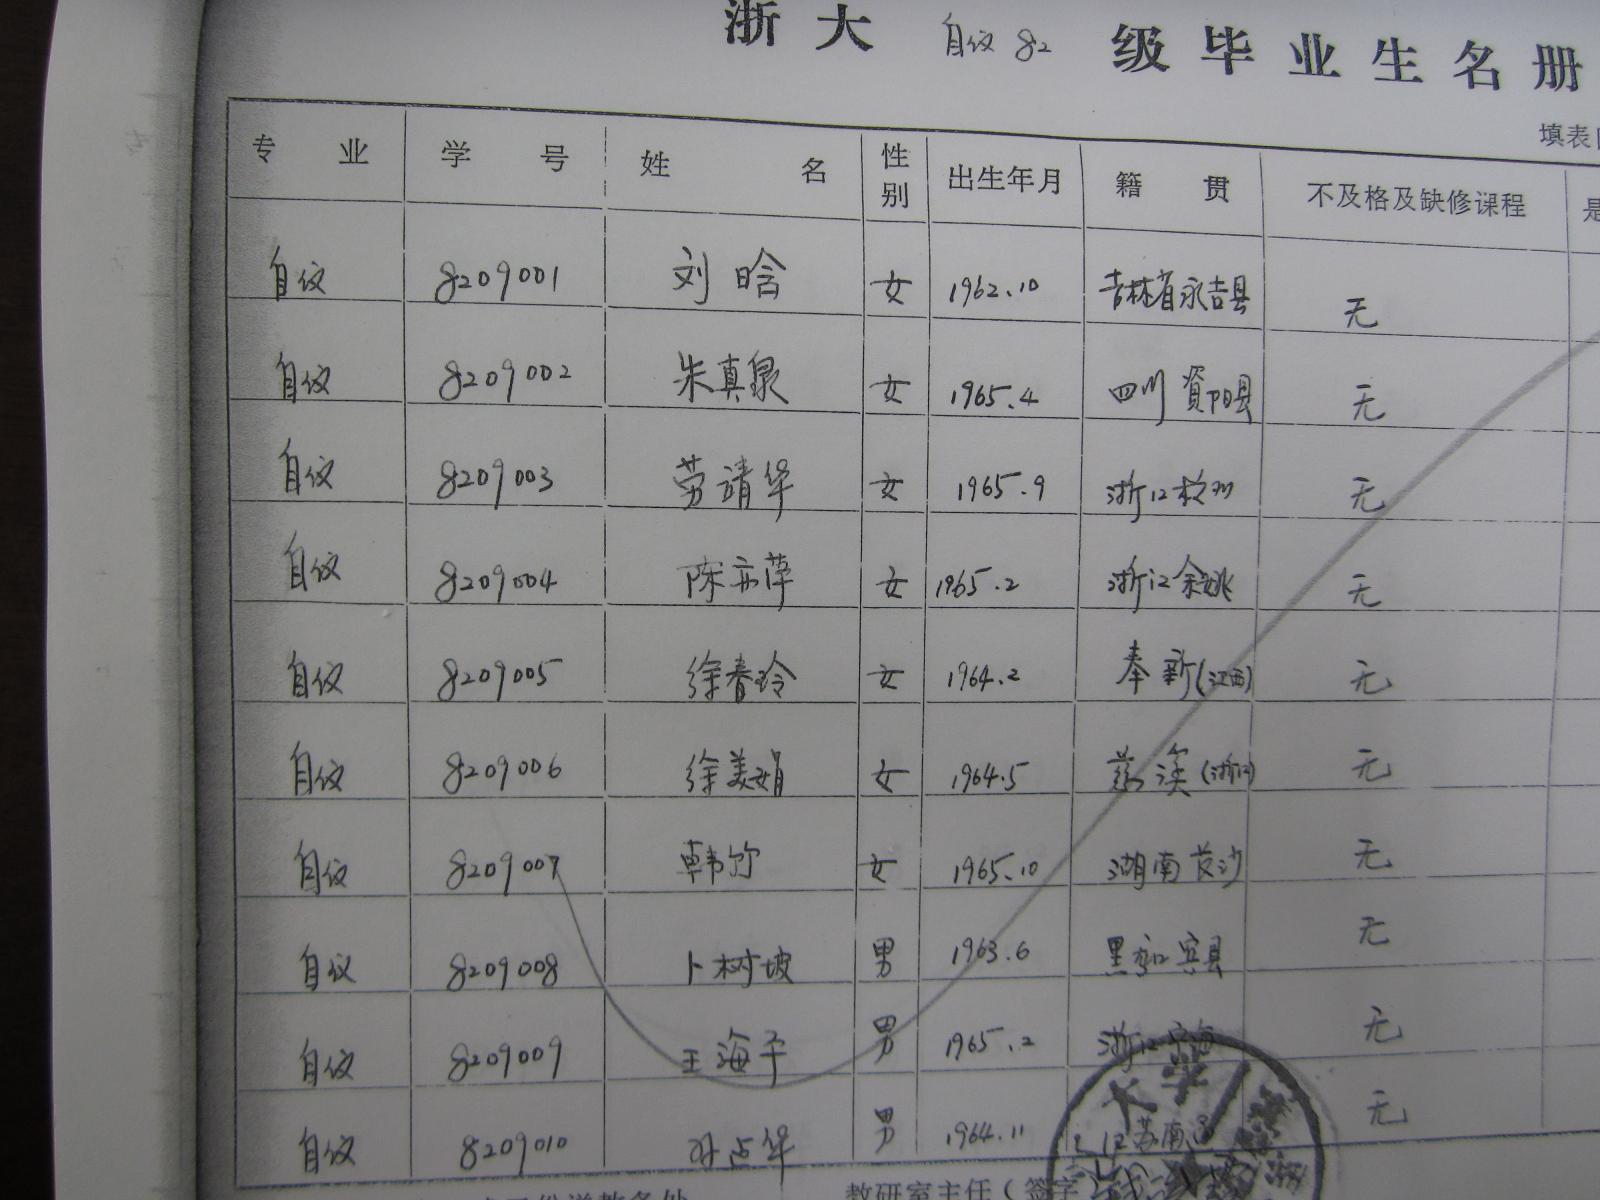 浙大 自仪82 级毕业生名册
填表
专业 学号 姓名 性别 出生年月 籍贯 不及格及缺修课程 是
自仪 8209001 刘晗 女 1962.10 吉林省永吉县 无
自仪 8209002 朱真泉 女 1965.4 四川 資阳县 无
自仪 8209003 劳靖华 女 1965.9 浙江杭州 无
自仪 8209004 陈亦萍 女 1965.2 浙江余姚 无
自仪 8209005 徐春玲 女 1964.2 奉新(江西) 无
自仪 8209006 徐美娟 女 1964.5 慈溪(浙江) 无
自仪 8209007 韩竹 女 1965.10 湖南长沙 无
自仪 8209008 卜树坡 男 1963.6 黑龙江宾县 无
自仪 8209009 王海平 男 1965.2 浙江 无
自仪 8209010 孙占华 男 1964.11 江苏南通 无
教研室主任(签字
大学